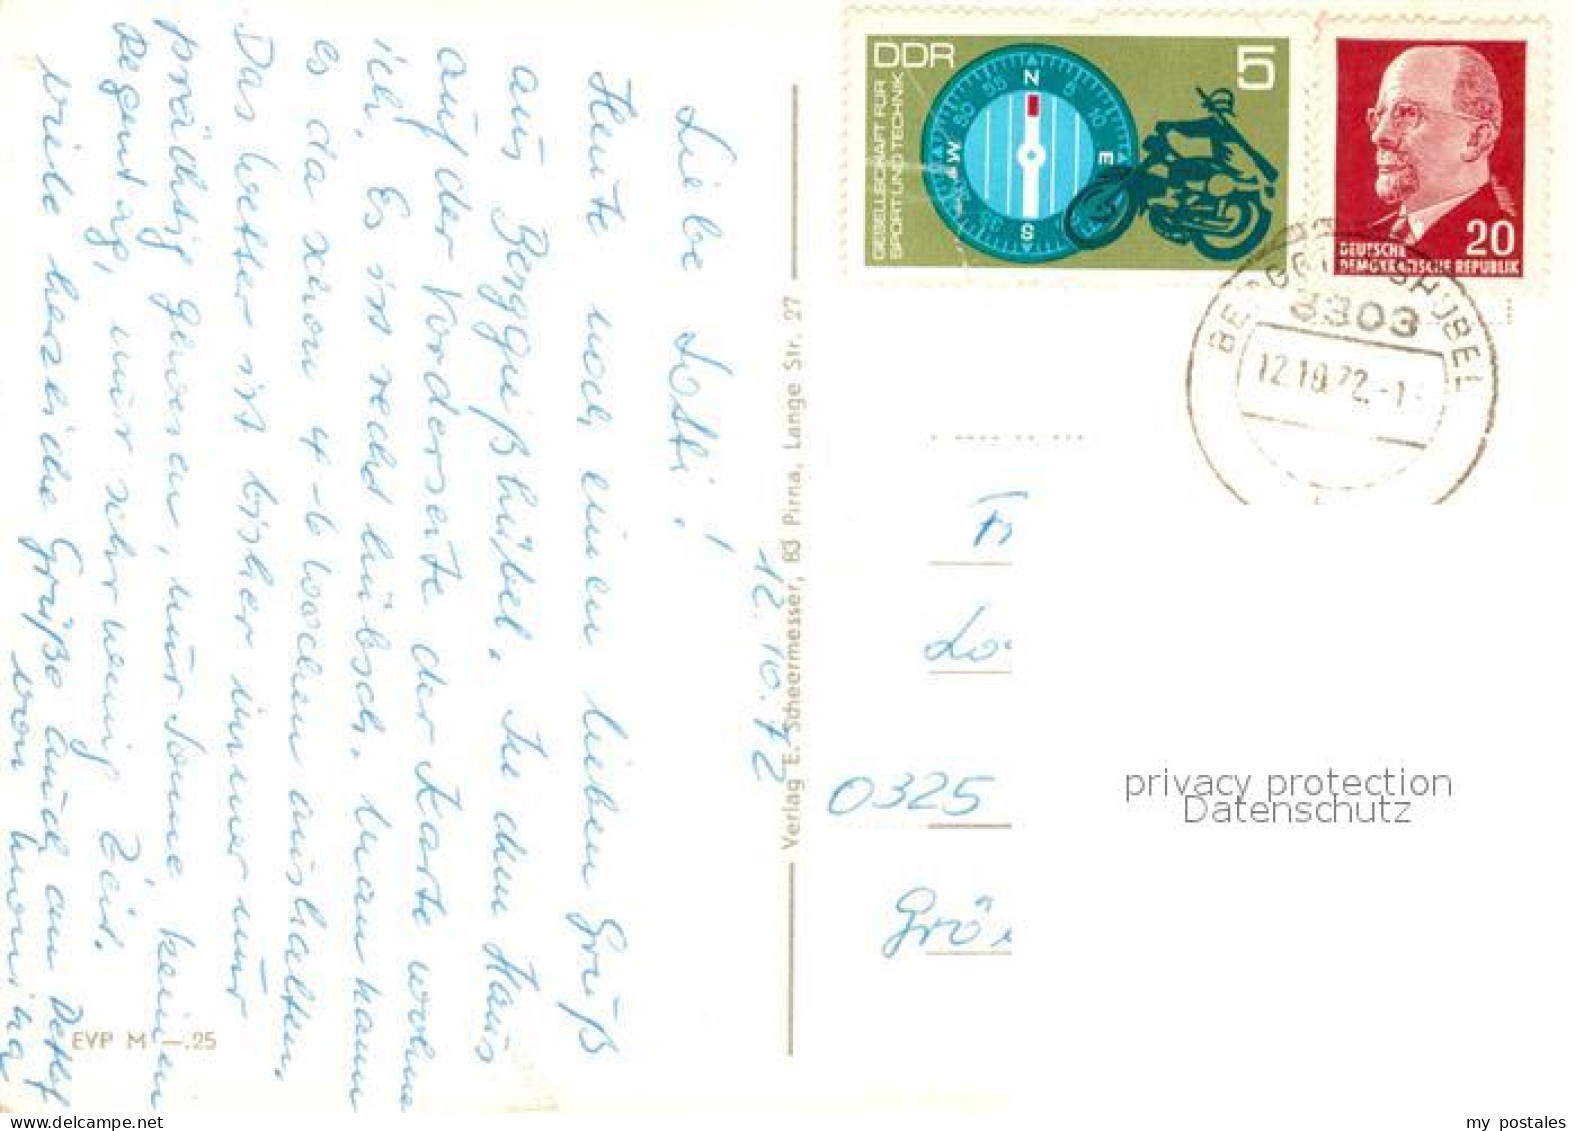 12.10.72
Liebe Lotti!
Heute noch einen lieben Gruß
aus Berggießhübel. In dem Haus
auf der Vorderseite der Karte wohne
ich. Es ist recht hübsch. Man kann
es da schon 4-6 Wochen aushalten.
Das Wetter ist bisher immer nur
prächtig gewesen, nur Sonne keinen
Regentag, nur sehr wenig Zeit.
Viele herzliche Grüße auch an Detlef
von Monika
EVP M —.25
Verlag E. Scheermesser, 83 Pirna, Lange Str. 27
DDR
5
GESELLSCHAFT FÜR
SPORT UND TECHNIK
N
5
10
E
S
W
50
55
20
DEUTSCHE
DEMOKRATISCHE REPUBLIK
BERGGIESSHÜBEL
8303
12.10.72.-1
0325
Grö
privacy protection
Datenschutz
my postales